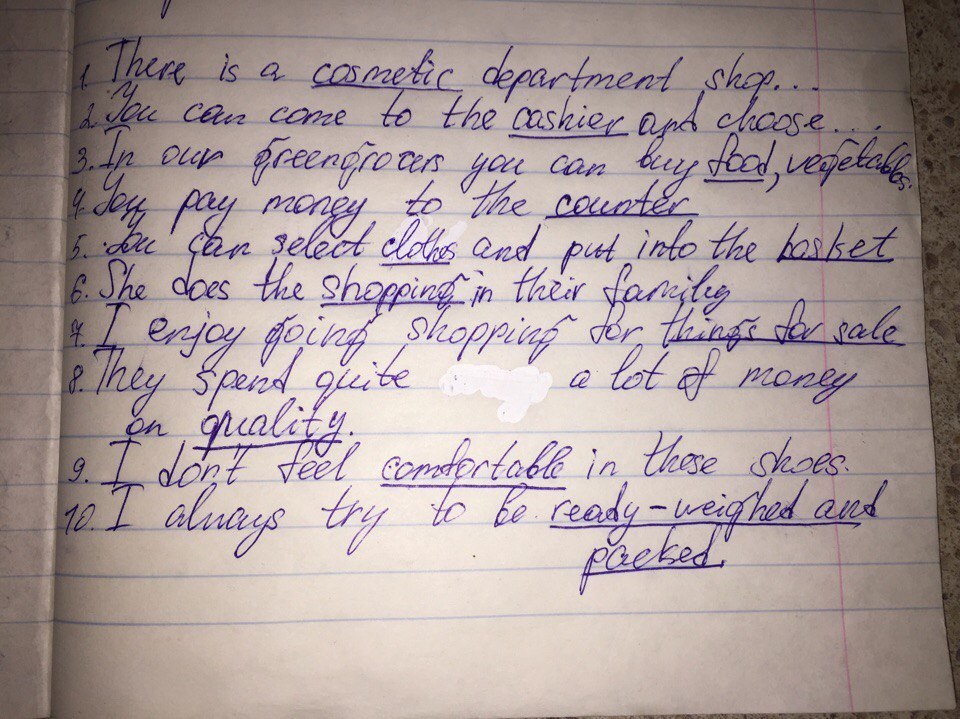 1. There is a cosmetic department shop...
2. You can come to the cashier and choose....
3. In our greengrocers you can buy food, vegetables.
4. You pay money to the counter
5. You can select cloths and put into the basket
6. She does the shopping in their family
7. I enjoy going shopping for things for sale
8. They spend quite a lot of money
on quality.
9. I don't feel comfortable in these shoes.
10. I always try to be ready-weighed and
packed.